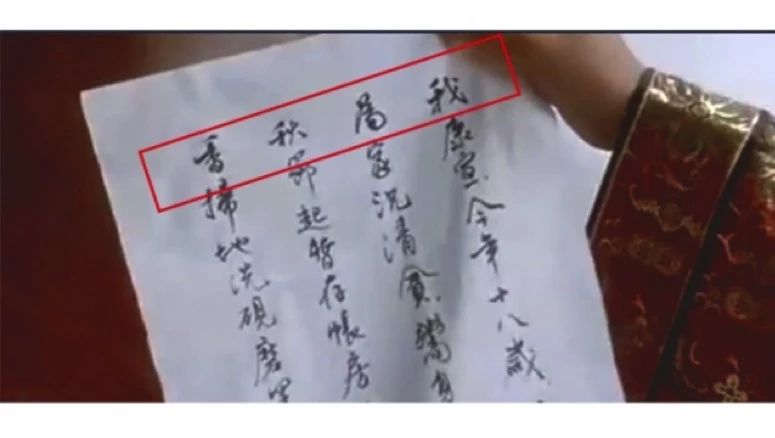 我康宣今年十八歲
為家況清貧鬻身
秋節起暫存帳房
香掃地洗硯磨墨